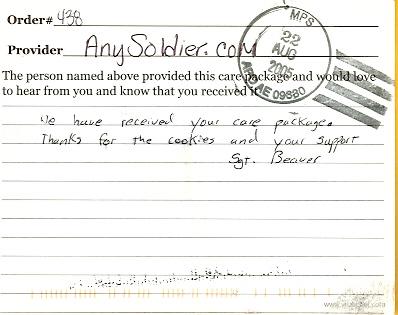 Order# 438
Provider AnySoldier.com
The person named above provided this care package and would love
to hear from you and know that you received it.
We have received your care package.
Thanks for the cookies and your support
Sgt. Beaver
MPS
22
AUG
2005
AE 09880